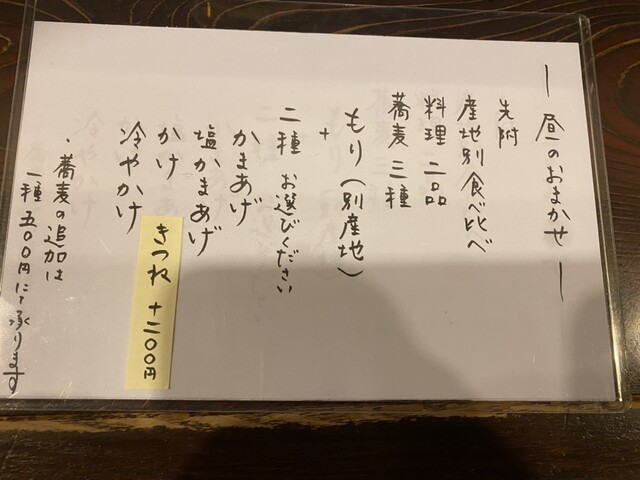 ー昼のおまかせー
先附
産地別食べ比べ
料理 二品
蕎麦 三種
もり(別産地)
+
二種 お選びください
かまあげ
塩かまあげ
かけ
冷やかけ
きつね +二〇〇円
・蕎麦の追加は
一種 五〇〇円にて承ります